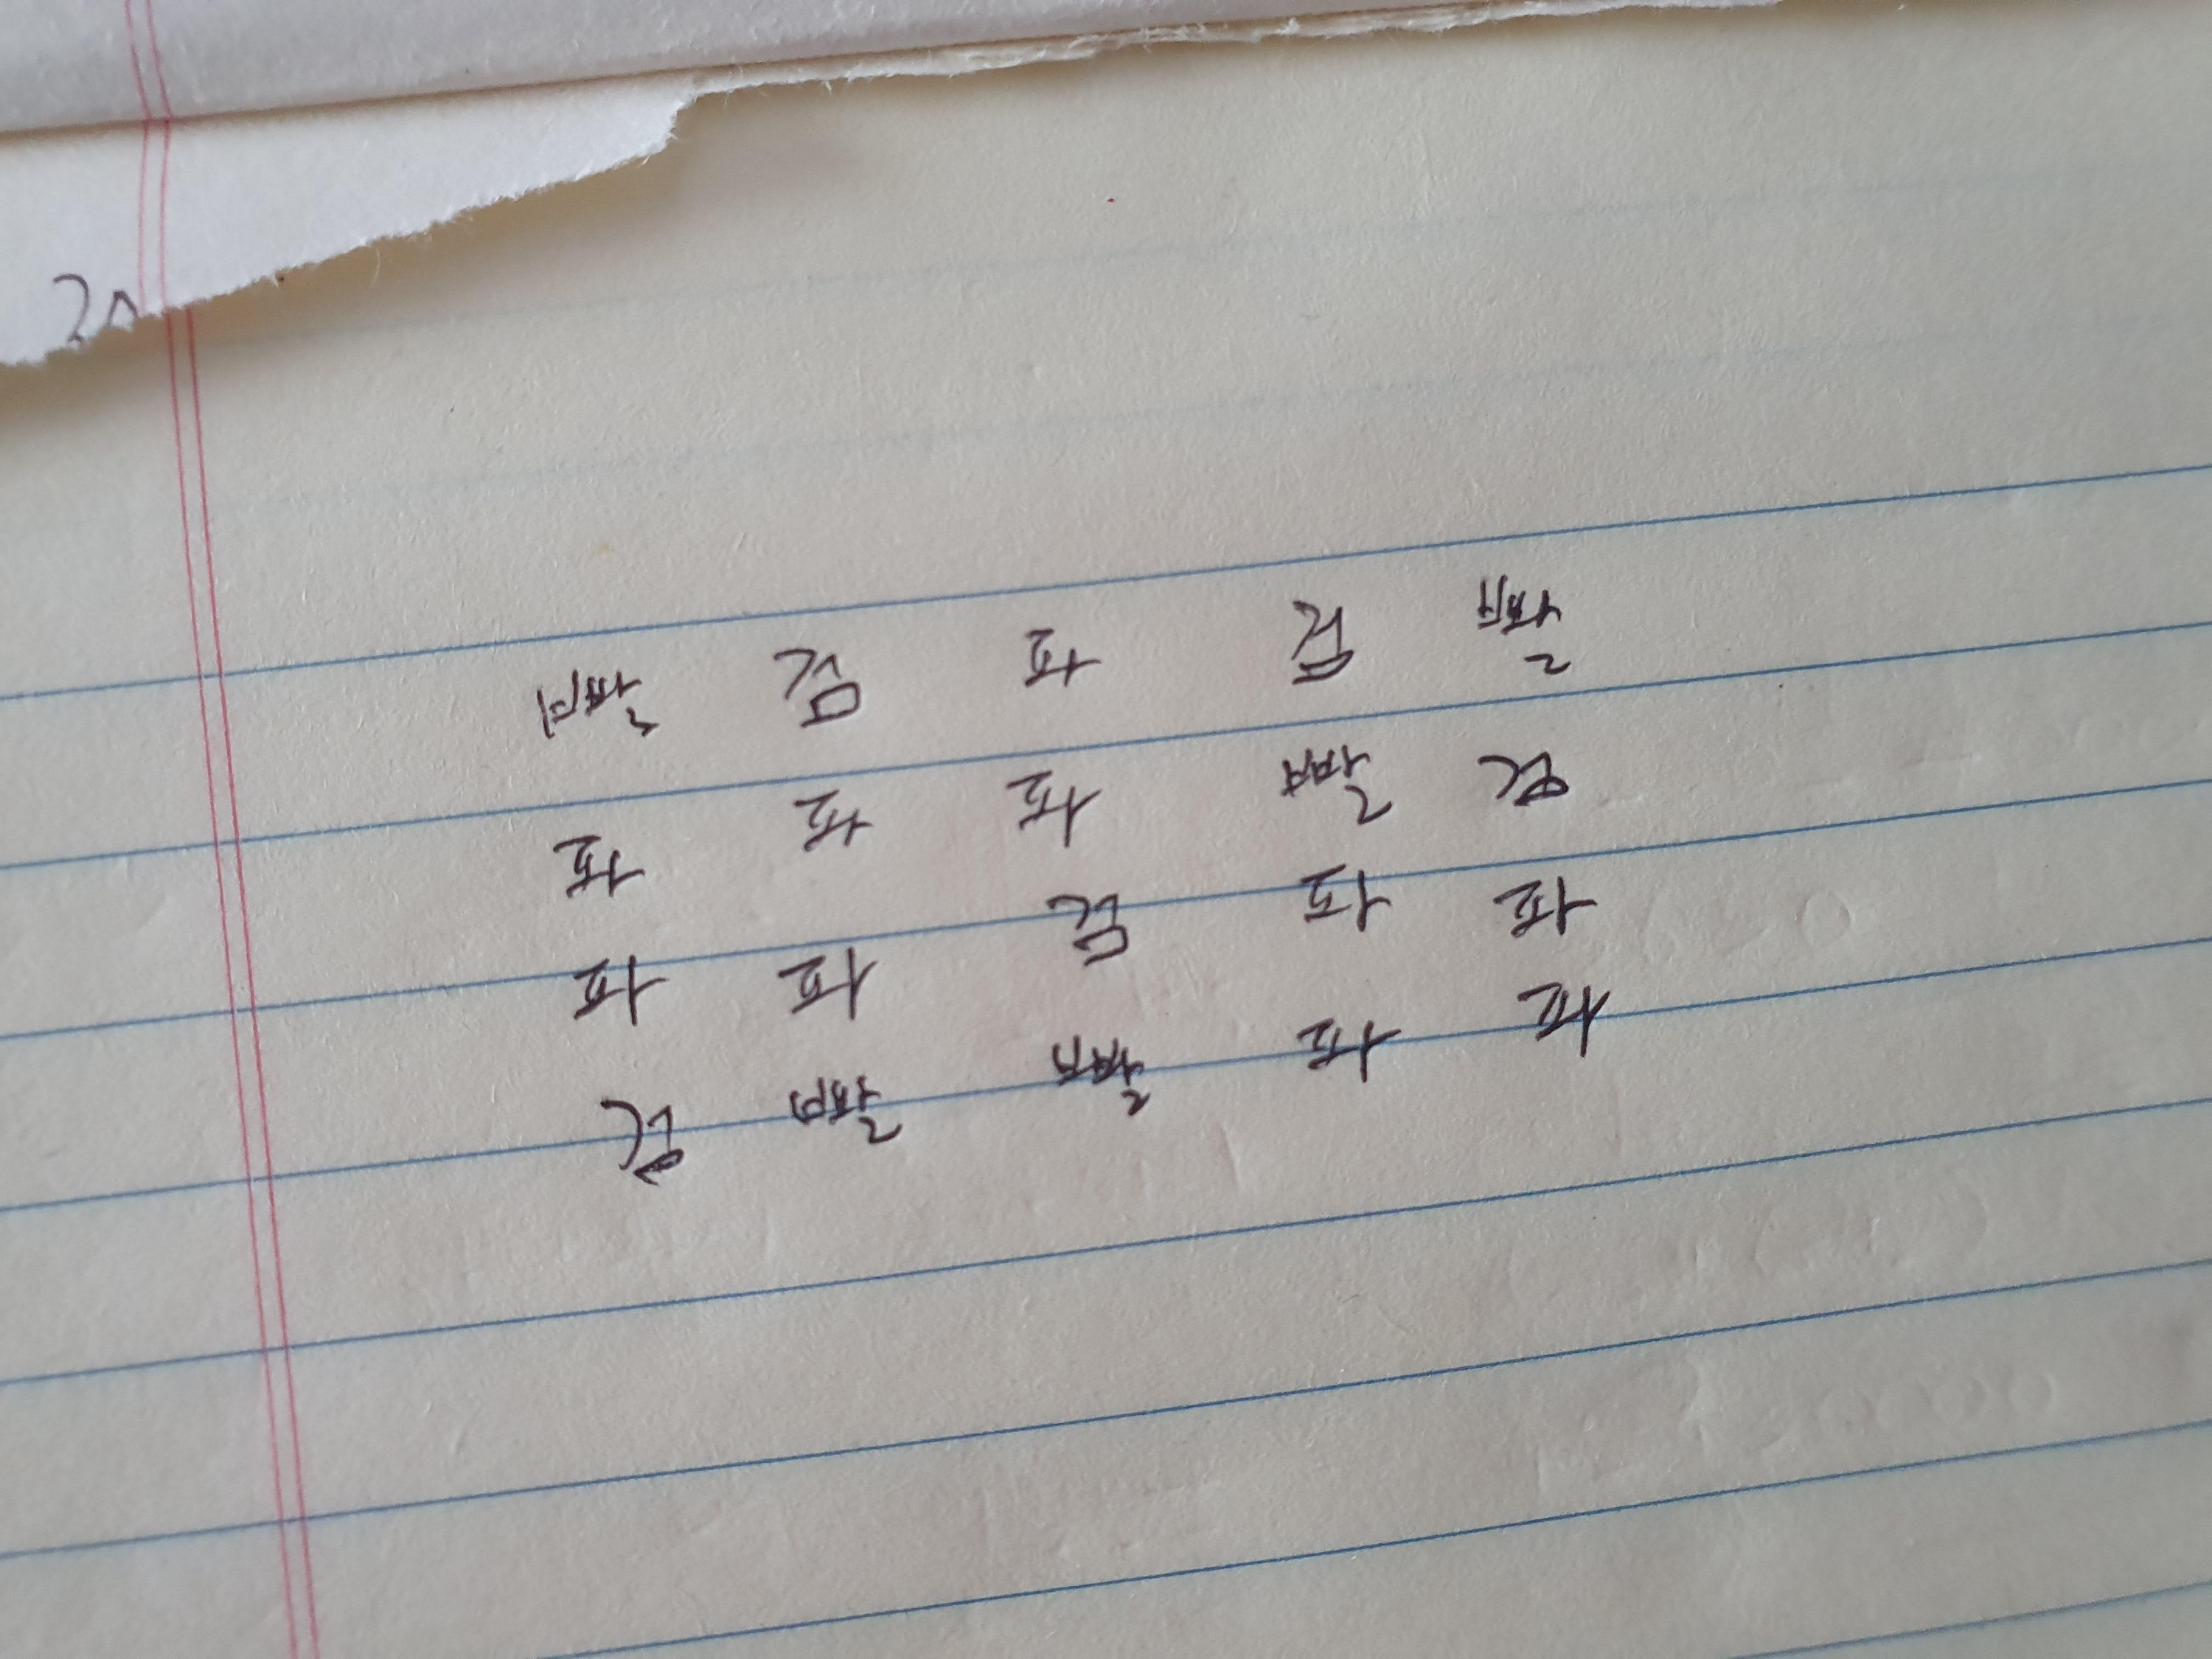 빨 검 파 검 빨
파 파 파 빨 검
파 파 검 파 파
검 빨 빨 파 파